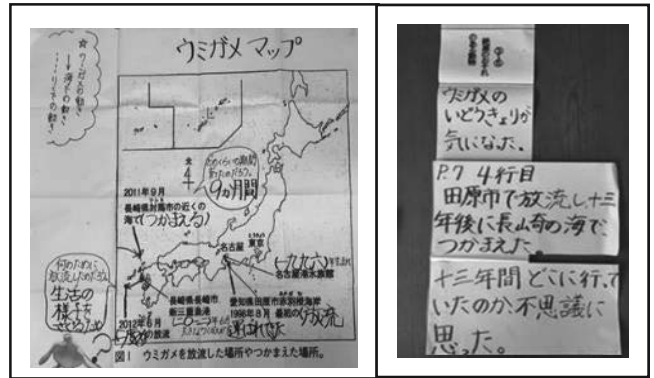 ウミガメ マップ
☆ウミガメの動き
海での動き
北
4
どのくらいの期間
9ヵ月間
2011年9月
長崎県対馬市の近くの
海で(つかまえる)
名古屋
東京
(一九九六)
名古屋港水族館
何のために
放流したのだろう。
生活の
様子を
さぐるため
長崎県長崎市
新三重漁港
2012年6月
の放流
愛知県田原市赤羽根海岸
1998年8月 最初の放流
図1 ウミガメを放流した場所やつかまえた場所。
ウミガメの
いどうきょりが
気になった.
P.7 4行目
田原市で放流し、十三
年後に長崎の海で
つかまえた
十三年間どこに行って
いたのか、不思議に
思った。